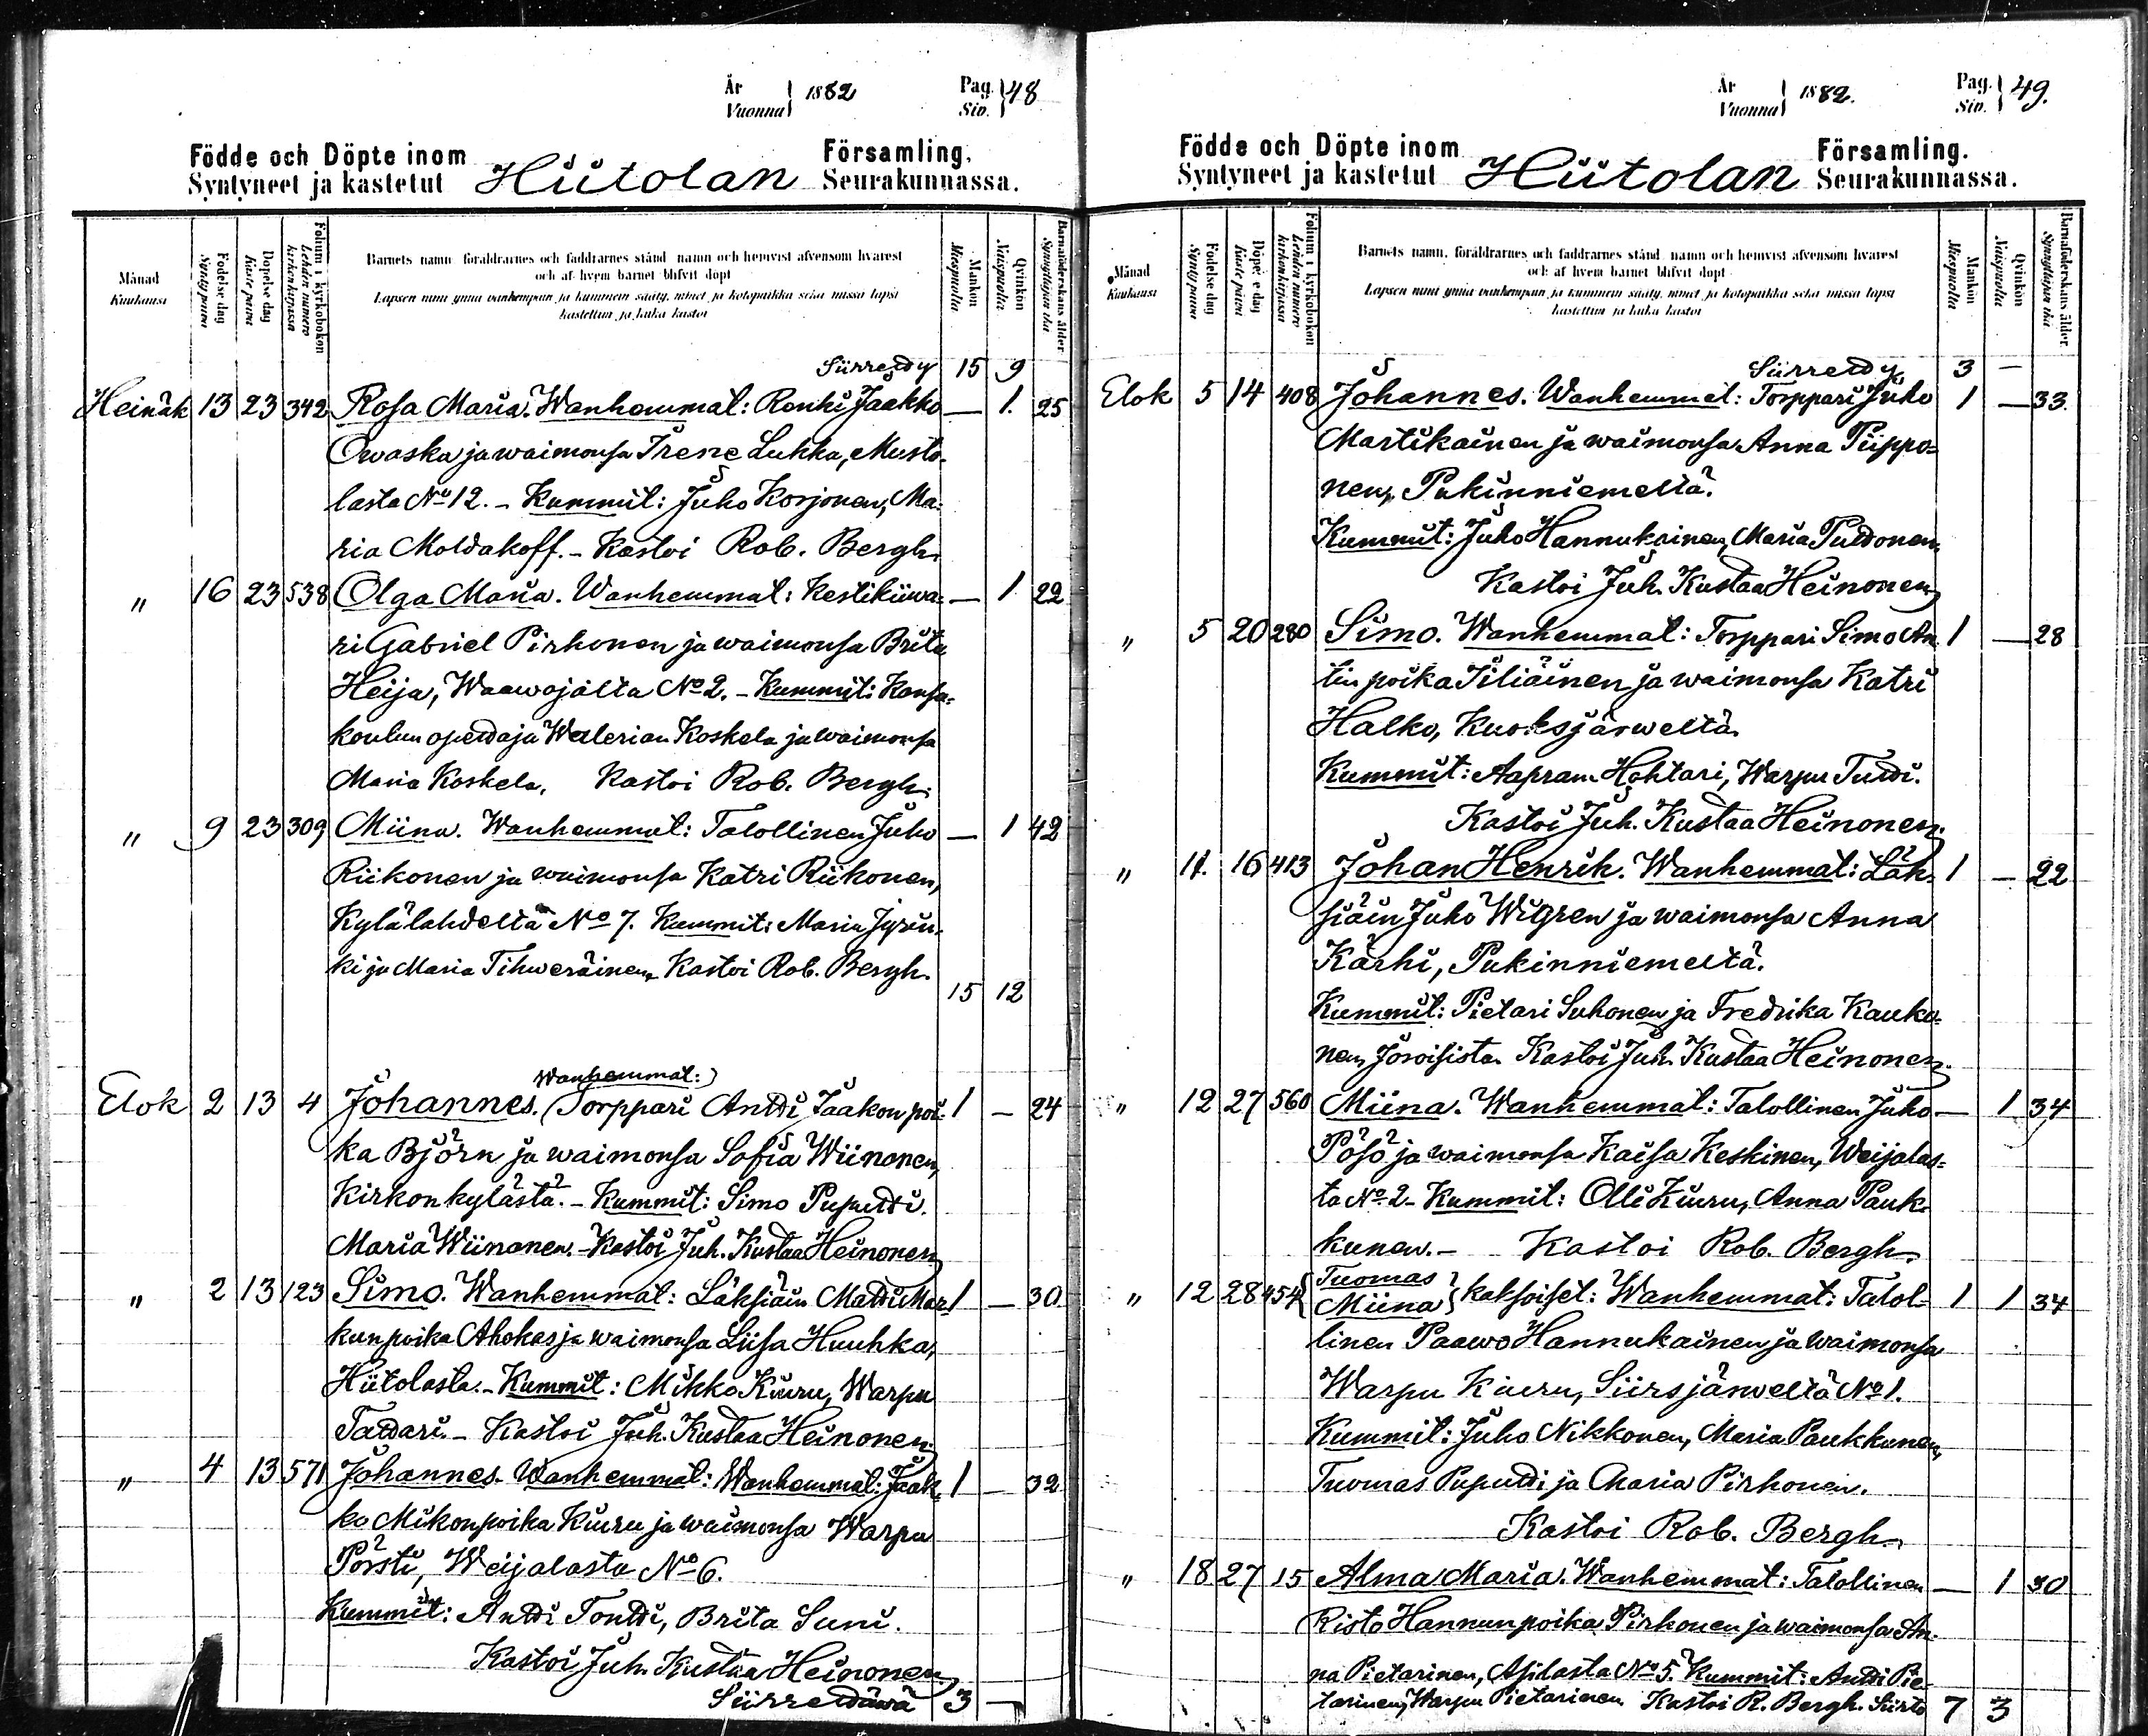 År
Vuonna } 1882
Pag.
Siv. } 48
Födde och Döpte inom
Syntyneet ja kastetut
Hiitolan
Församling.
Seurakunnassa.
Månad
Kuukausi
Födelse dag
Synty päivä
Döpelse dag
Kaste päivä
Folium i kyrkoboken
Lehden numero
kirkonkirjassa
Barnets namn, föräldrarnes och faddrarnes stånd namn och hemvist äfvensom hvarest
och af hvem barnet blifvit döpt
Lapsen nimi ynnä vanhempain ja kummein sääty, nimet ja kotopaikka sekä missä lapsi
kastettiin ja kuka kastoi
Mankön
Miespuolia
Qvinkön
Naispuolia
Barnaföderskans ålder
Synnyttäjän ikä
Siirretty 15 9
Heinäk 13 23 342 Rosa Maria. Wanhemmat: Renki Jaakko — 1. 25
Owaska ja waimonsa Irene Lukka, Musto-
lasta No 12. - Kummit: Juho Korjonen, Ma-
ria Moldakoff. - Kastoi Rob. Bergh.
" 16 23 538 Olga Maria. Wanhemmat: Kestikiiwa- — 1 22
ri Gabriel Pirhonen ja waimonsa Brita
Heija, Waawojalta No 2. - Kummit: Kansa-
koulun opettaja Walerian Koskela ja waimonsa
Maria Koskela. Kastoi Rob. Bergh.
" 9 23 309 Miina. Wanhemmat: Talollinen Juho — 1 42
Riikonen ja waimonsa Katri Riikonen,
Kylälahdeltä No 7. Kummit: Maria
ki ja Maria Tihweräinen, Kastoi Rob. Bergh.
15 12
Wanhemmat:
Elok 2 13 4 Johannes. (Torppari Antti Jaakon poi- 1 — 24
ka Björn ja waimonsa Sofia Wiinonen,
Kirkonkylästä. - Kummit: Simo Puputti.
Maria Wiinanen. - Kastoi Juh. Kustaa Heinonen
" 2 13 123 Simo. Wanhemmat: Läksiäin Matti Mar- 1 — 30
kunpoika Ahokas ja waimonsa Liisa Huuhka,
Hiitolasta. - Kummit: Mikko Kiuru, Warpu
Tattari. - Kastoi Juh. Kustaa Heinonen.
" 4 13 571 Johannes. Wanhemmat: Wanhemmat: Jaak- 1 — 32
ko Mikonpoika Kiuru ja waimonsa Warpu
Pörsti, Weijalasta No 6.
Kummit: Antti Tontti, Brita Suni.
Kastoi Juh. Kustaa Heinonen
Siirrettäwä 3 —
År
Vuonna } 1882.
Pag.
Siv. } 49.
Födde och Döpte inom
Syntyneet ja kastetut
Hiitolan
Församling.
Seurakunnassa.
Månad
Kuukausi
Födelse dag
Synty päivä
Döpelse dag
Kaste päivä
Folium i kyrkoboken
Lehden numero
kirkonkirjassa
Barnets namn, föräldrarnes och faddrarnes stånd namn och hemvist äfvensom hvarest
och af hvem barnet blifvit döpt
Lapsen nimi ynnä vanhempain ja kummein sääty, nimet ja kotopaikka sekä missä lapsi
kastettiin ja kuka kastoi
Mankön
Miespuolia
Qvinkön
Naispuolia
Barnaföderskans ålder.
Synnyttäjän ikä
Siirretty 3 —
Elok 5 14 408 Johannes. Wanhemmat: Torppari Juho 1 — 33.
Martikainen ja waimonsa Anna Piippo-
nen, Pukinniemeltä.
Kummit: Juho Hannukainen, Maria Puttonen.
Kastoi Juh. Kustaa Heinonen
" 5 20 280 Simo. Wanhemmat: Torppari Simo An- 1 — 28
tin poika Iiliäinen ja waimonsa Katri
Halko, Kuoksjärweltä.
Kummit: Aapram Hohtari, Warpu Tutti.
Kastoi Juh. Kustaa Heinonen.
" 11. 16 413 Johan Henrik. Wanhemmat: Läk- 1 — 22
siäin Juho Wigren ja waimonsa Anna
Kärhi, Pukinniemeltä.
Kummit: Pietari Suhonen ja Fredrika Kauko-
nen, Joroisista. Kastoi Juh. Kustaa Heinonen.
" 12 27 560 Miina. Wanhemmat: Talollinen Juho — 1 34
Pösö ja waimonsa Kaisa Keskinen, Weijalas-
ta No 2 - Kummit: Olli Kiuru, Anna Pauk-
kunen. - Kastoi Rob. Bergh.
" 12 28 454 { Tuomas
Miina } kaksoiset: Wanhemmat: Talol- 1 1 34
linen Paawo Hannukainen ja waimonsa
Warpu Kiuru, Siirsjärweltä No 1.
Kummit: Juho Nikkonen, Maria Paukkunen,
Tuomas Puputti ja Maria Pirhonen.
Kastoi Rob. Bergh.
" 18 27 15 Alma Maria. Wanhemmat: Talollinen — 1 30
Risto Hannunpoika Pirhonen ja waimonsa An-
na Pietarinen, Asilasta No 5. Kummit: Antti Pie-
tarinen, Warpu Pietarinen Kastoi R. Bergh. Siirto 7 3